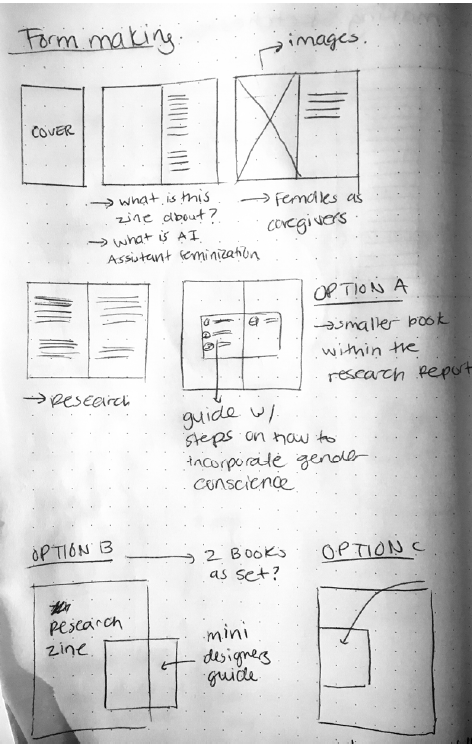 Form making.
images.
COVER
→ what is this
zine about?
→ what is AI
Assistant feminization
→ Females as
caregivers
→ Research
OPTION A
→ smaller book
within the
research report
guide w/
steps on how to
incorporate gender
conscience
OPTION B → 2 Books
as set?
Research
zine
mini
designers
guide
OPTION C